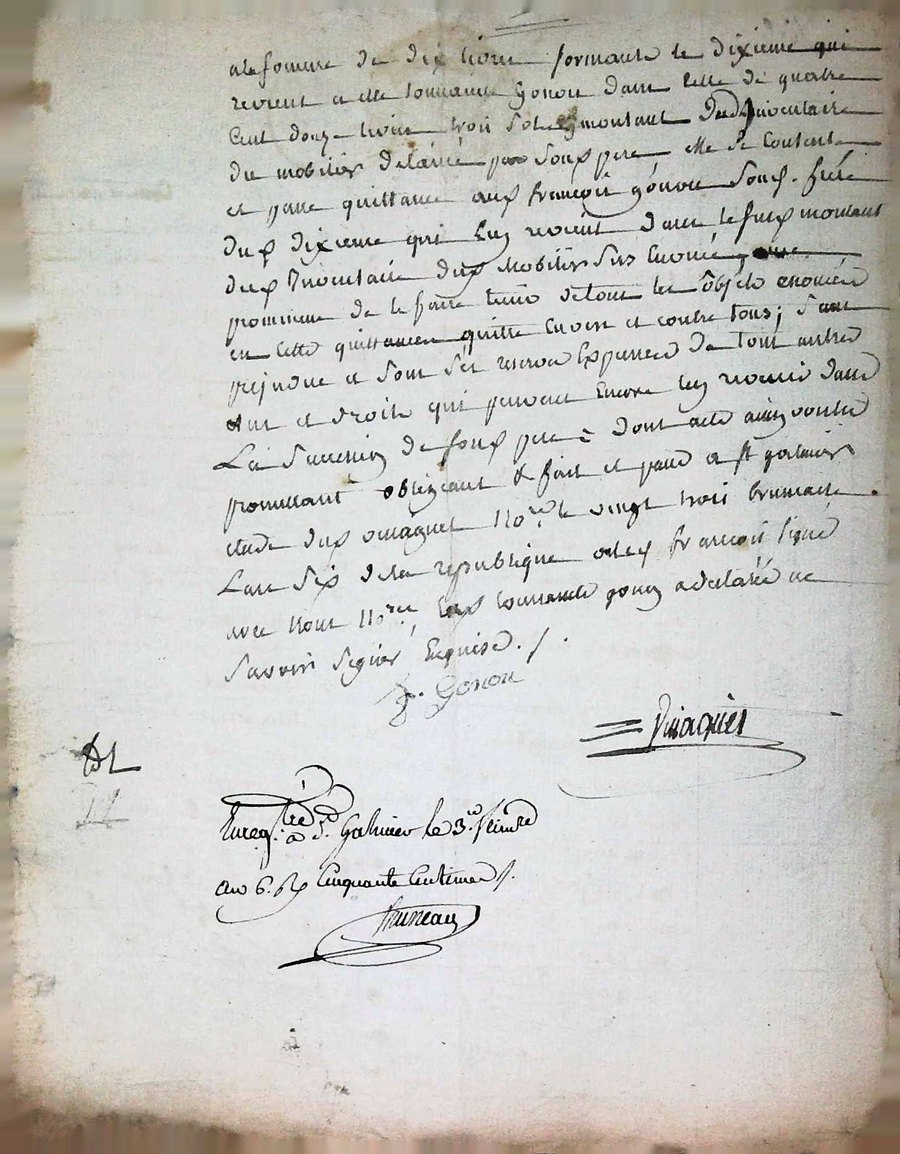 a la somme de dix livres formante le dixieme qui
revient a elle Gonon dans celle de quatre
Cent douze livres trois sols montant dud Inventaire
du mobilier delaissé par Son pere elle Se Contente
et passe quittance aud françois gonon Son frere
dud dixieme qui luy revient dans le montant
dud Inventaire dud Mobilier Sus Enoncé
promesse de le faire tenir de tous les objets enoncés
en Cette quittance quitte Envers et contre tous ; Sans
prejudice et Sous Ses reserves Expresses de tout autres
dus et droits qui peuvent Encore luy revenir dans
La Succession de Son pere dont acte ainsy voulu
promettant obligeant & fait et passé a st galmier
etude not.re le vingt trois brumaire
Lan Six de la republique led françois Signé
avec Nous No.re, lad gonon a declaré ne
Savoir Signer Enquise ./.
f. Gonon
Enreg.tré a S.t Galmier le 3.
an 6. Cinquante Centimes